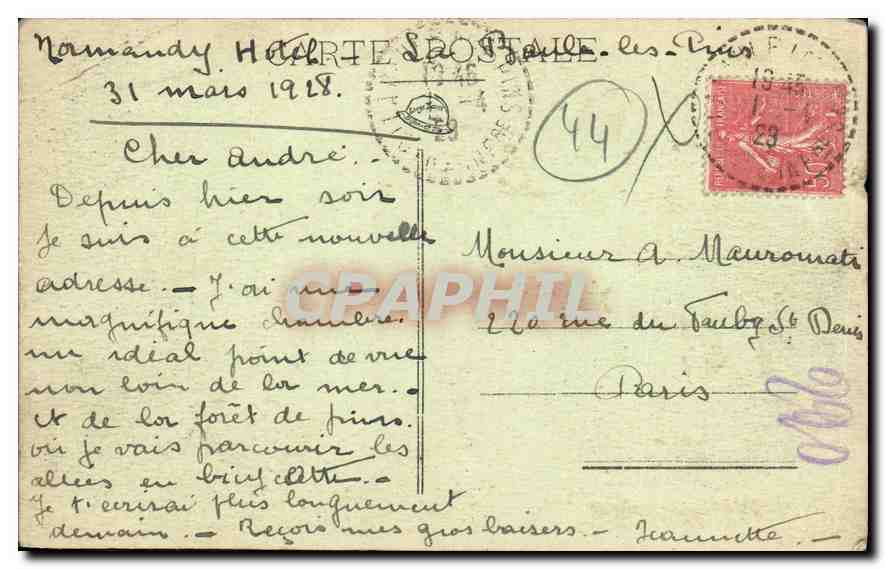 CARTE POSTALE
Normandy Hotel - La Baule-les-Pins
31 mars 1928.
Cher André. -
Depuis hier soir
je suis à cette nouvelle
adresse. - J'ai une
magnifique chambre.
un idéal point de vue
non loin de la mer. -
et de la forêt de pins.
où je vais parcourir les
allées en bicyclette. -
Je t'écrirai plus longuement
demain. - Reçois mes gros baisers. - Jeannette. -
44
Monsieur A. Mauromati
220 rue du Faubg St Denis
Paris
CPAPHIL